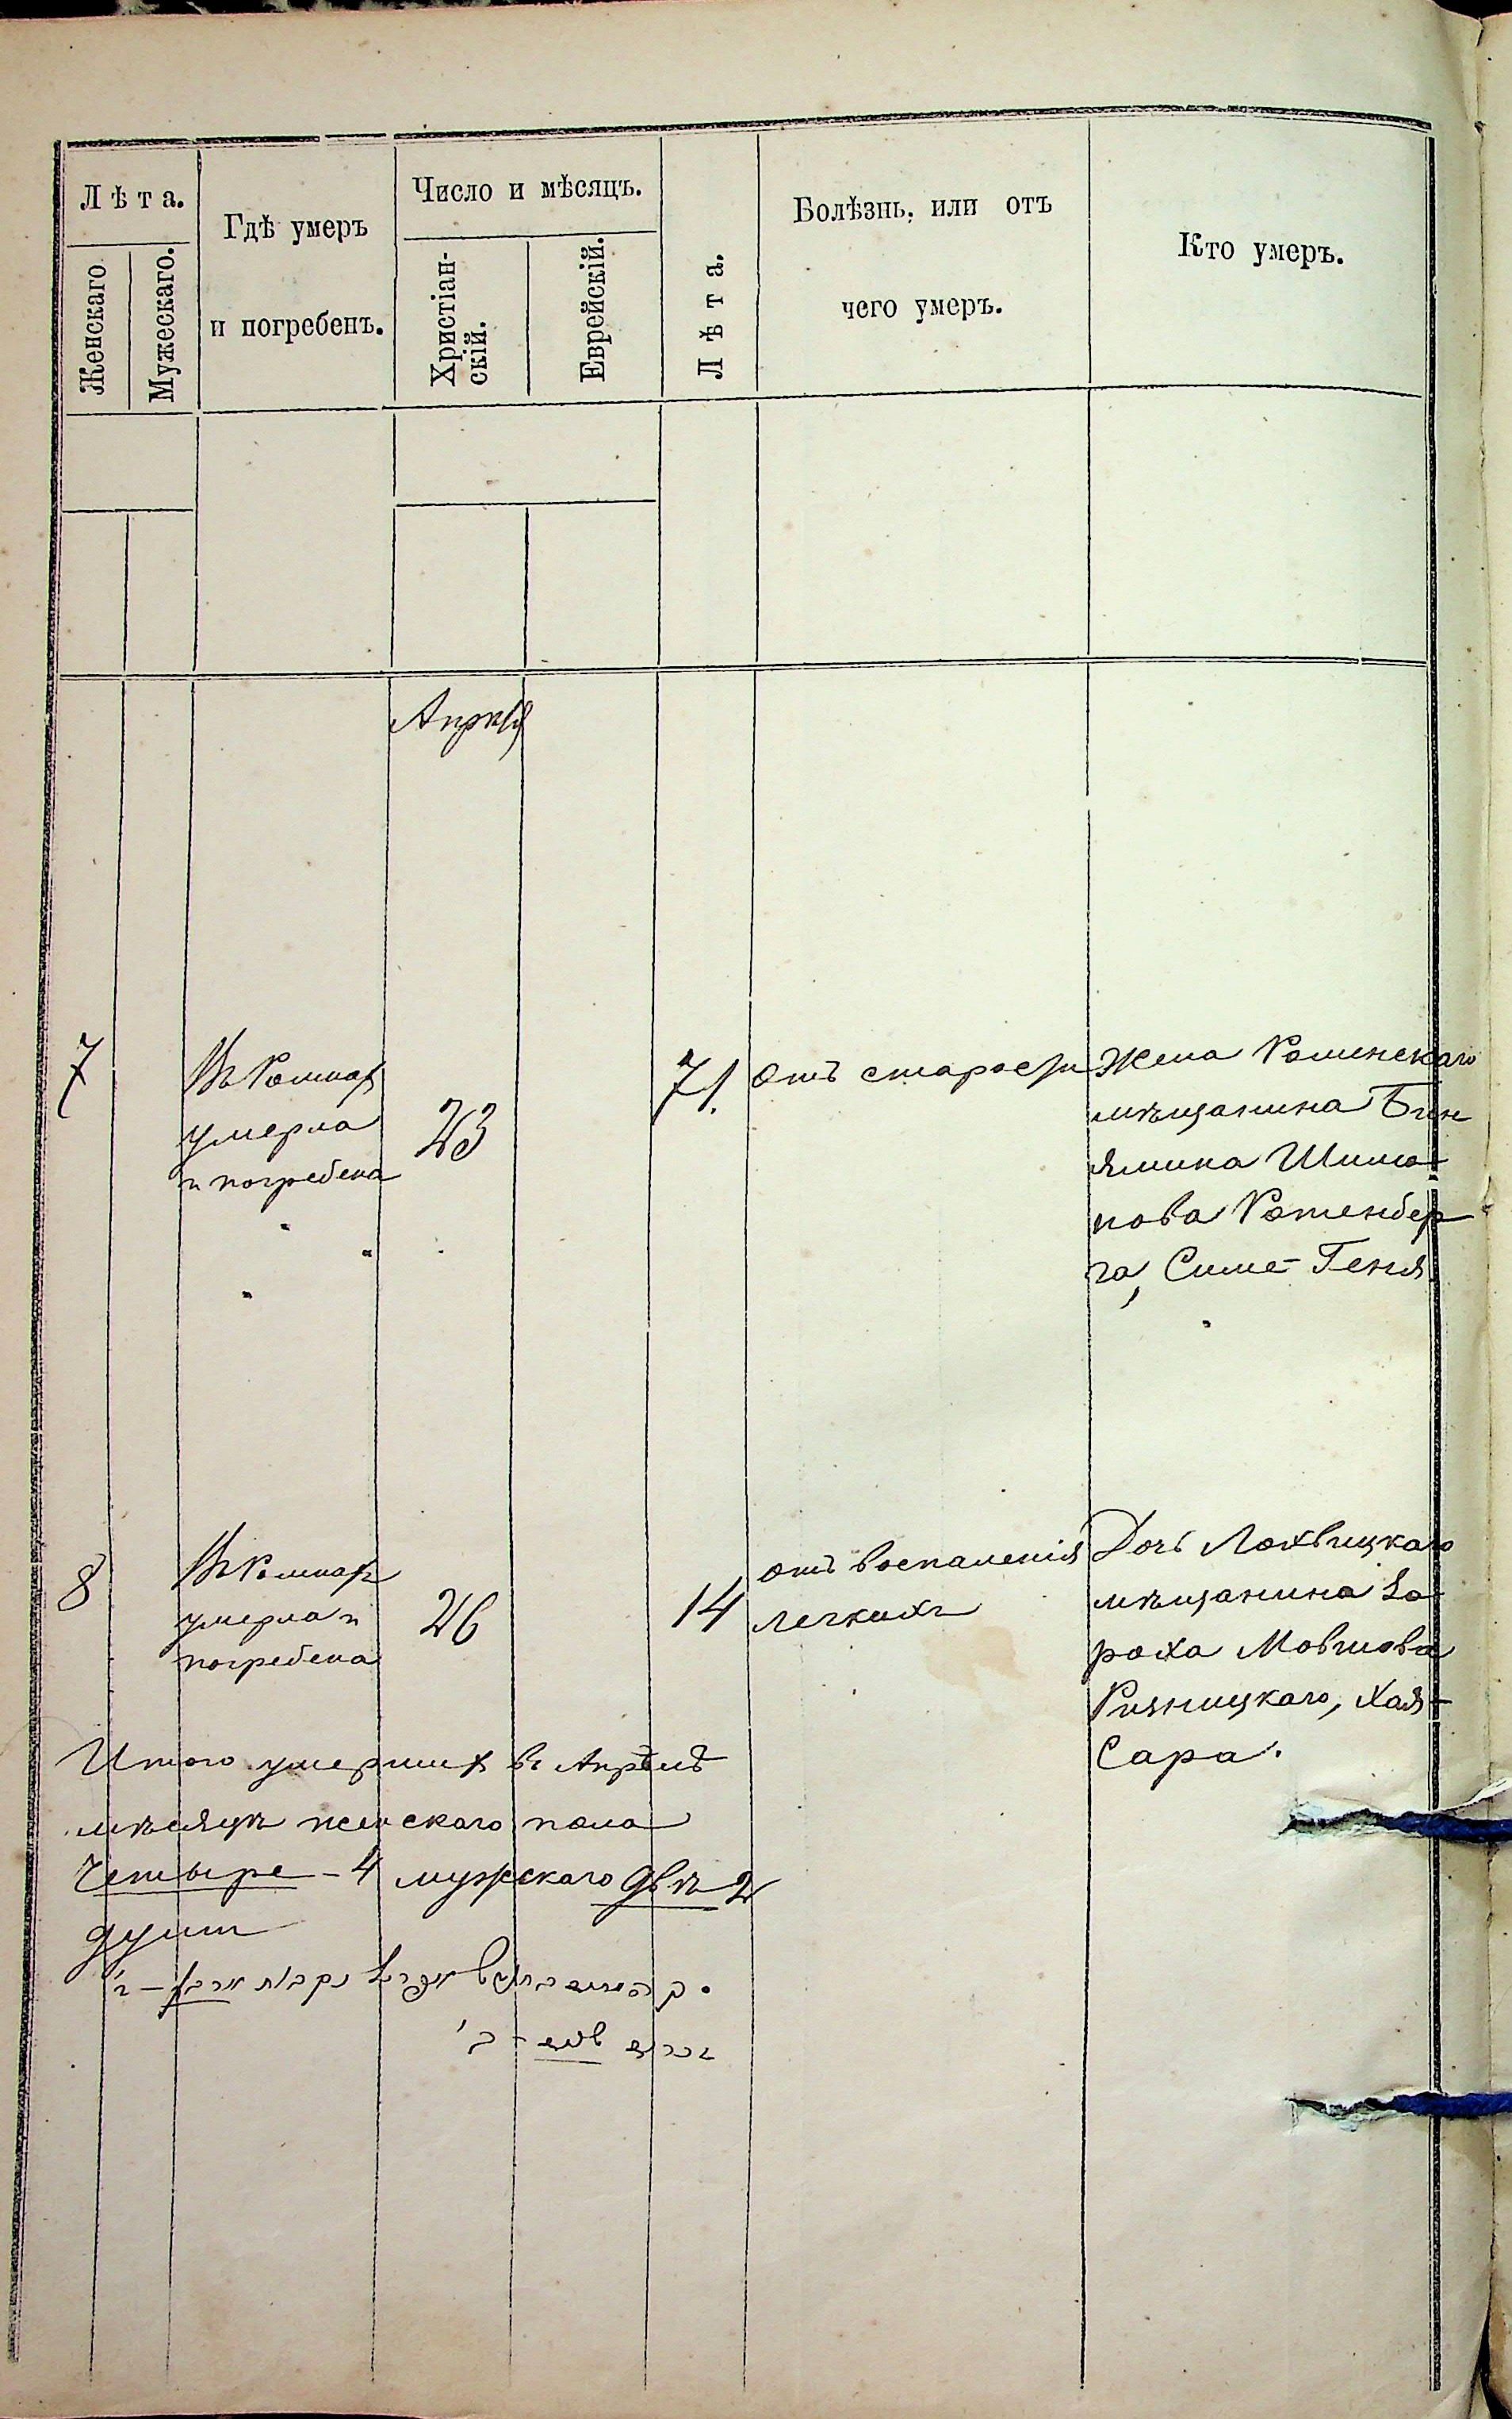 Лѣта.
Женскаго
Мужескаго.
Гдѣ умеръ
и погребенъ.
Число и мѣсяцъ.
Христіан-
скій.
Еврейскій.
Лѣта.
Болѣзнь, или отъ
чего умеръ.
Кто умеръ.
Апрѣля
7
Въ Ромнах
умерла
и погребена
23
71.
отъ старости
Жена Роменскаго
мѣщанина Бин
ямина Шимо-
нова Ротенбер
га, Симе-Геня
8
Въ Ромнахъ
умерла и
погребена
26
14
отъ воспаленія
легкихъ
Дочь Лохвицкаго
мѣщанина Бо
роха Мовшова
Ризницкаго, Хая-
Сара.
Итого умерших въ Апрѣлѣ
мѣсяцѣ женскаго пола
Четыре - 4 мужскаго двѣ 2
душъ